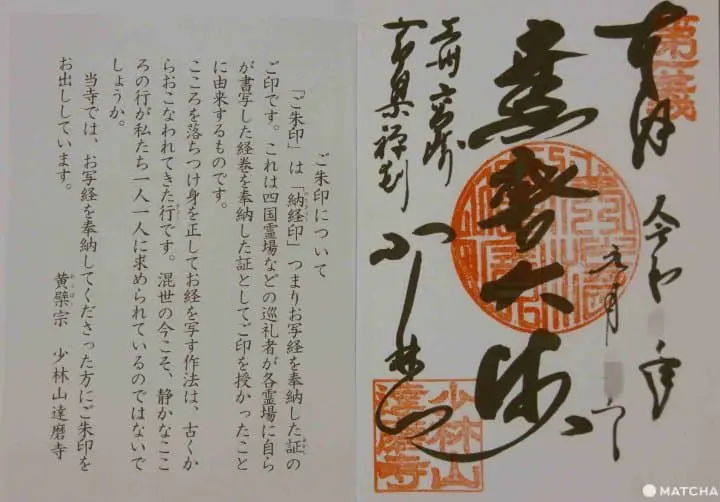 第一義
令和 年
上州 高崎
少林山
少林山
達磨寺
ご朱印について
「ご朱印」は「納経印」つまりお写経を奉納した証の
ご印です。これは四国霊場などの巡礼者が各霊場に自ら
が書写した経巻を奉納した証としてご印を授かったこと
に由来するものです。
こころを落ちつけ身を正してお経を写す作法は、古くか
らおこなわれてきた行です。混世の今こそ、静かなここ
ろの行が私たち一人一人に求められているのではないで
しょうか。
当寺では、お写経を奉納してくださった方にご朱印を
お出ししています。
黄檗宗 少林山達磨寺
MATCHA